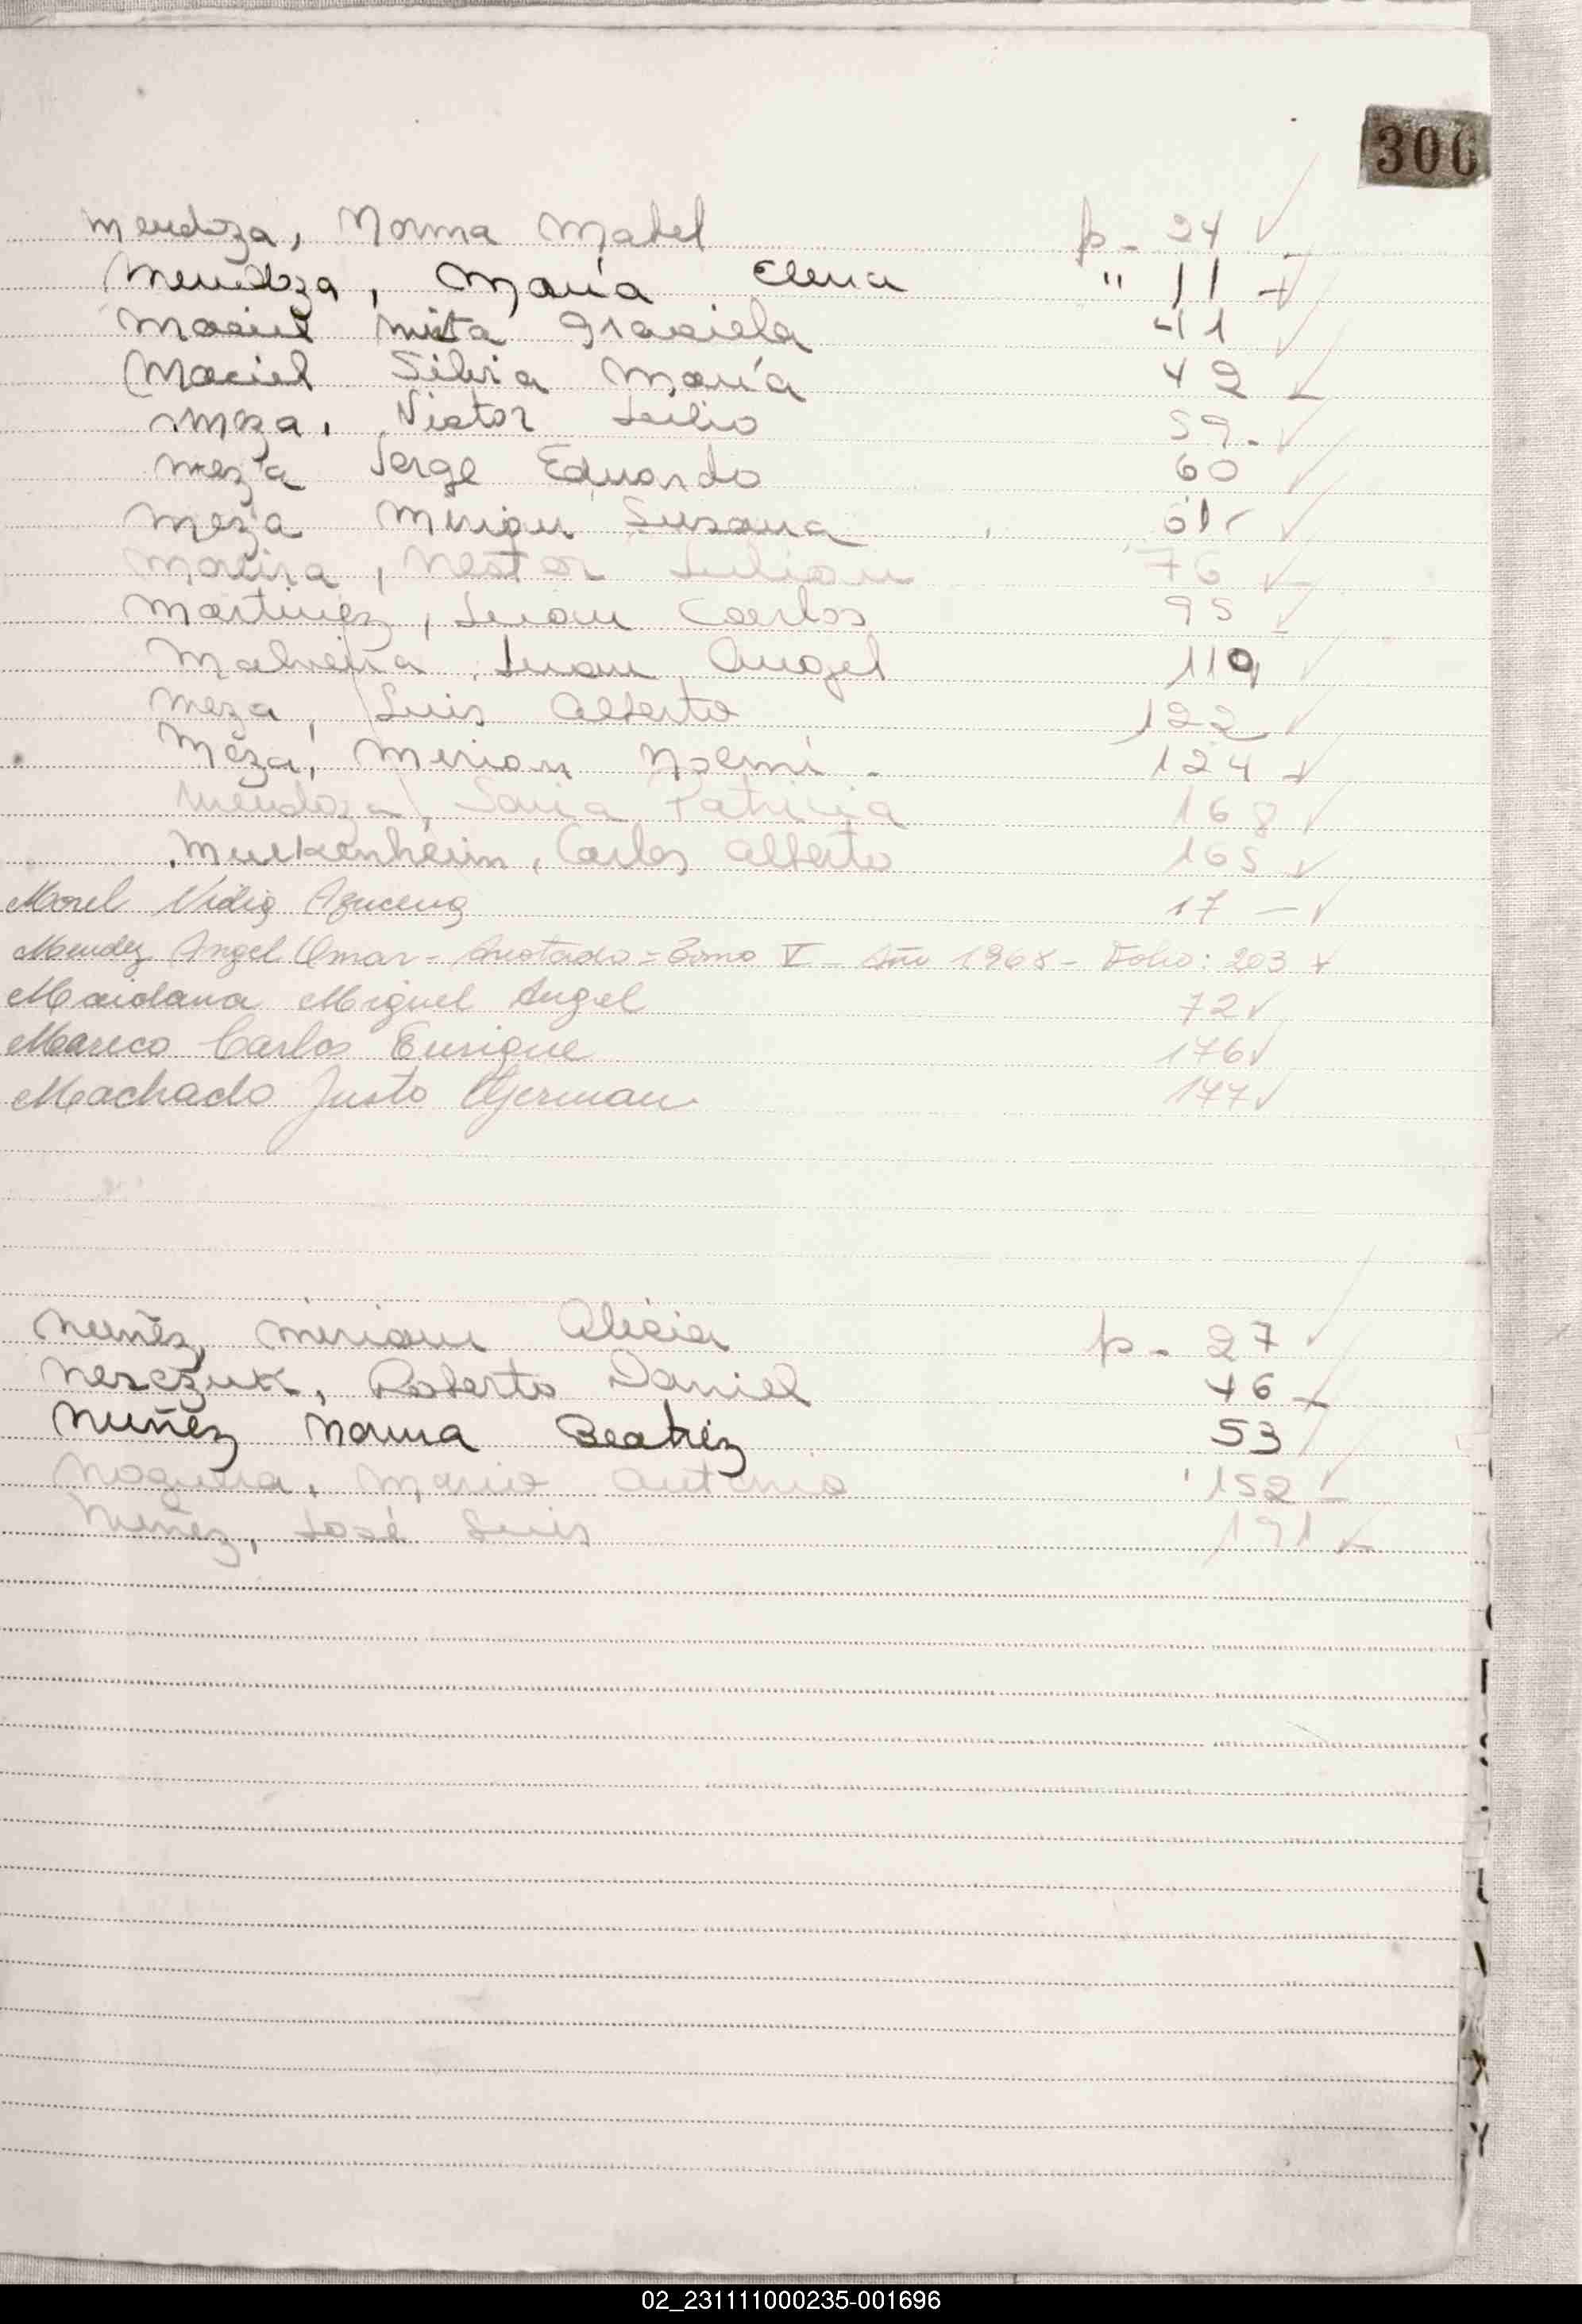 306
Mendoza, Norma Mabel p. 24
Mendoza, María Elena " 11
Maciel Mirta Graciela 41
Maciel Silvia María 42
Meza, Victor Julio 59.
Meza Jorge Eduardo 60
Meza Miriam Susana 61
Moreira, Nestor Julian 76
Martinez, Juan Carlos 95
Malvena, Juan Angel 119
Meza, Luis Alberto 122
Meza, Mirian Noemí. 124
Mendoza, Sonia Patricia 168
Muckenheim, Carlos Alberto 165
Morel Nidia Azucena 17 —
Mendez Angel Omar - Anotado = Tomo V - Año 1968 - Folio: 203
Maidana Miguel Angel 72
Mareco Carlos Enrique 176
Machado Justo German 177
Nuñez, Miriam Alicia p. 27
Nesczuk, Roberto Daniel 46
Nuñez Norma Beatriz 53
Noguera, Mario Antonio 152
Nuñez, José Luis 191
02_231111000235-001696